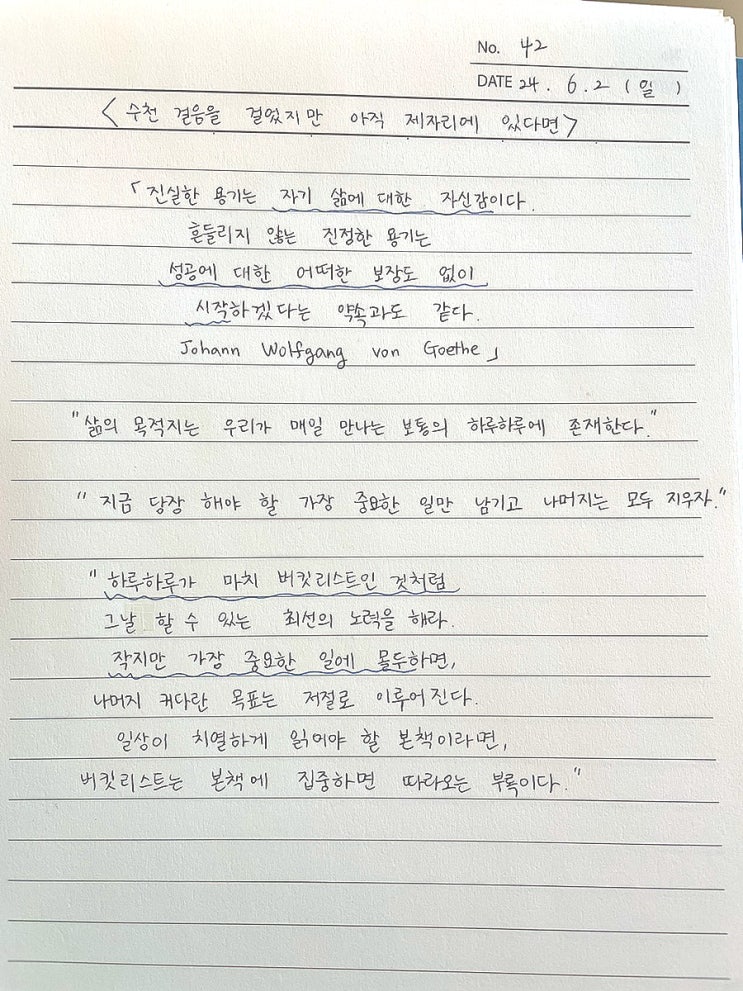 No. 42
DATE 24. 6. 2 (일)
<수천 걸음을 걸었지만 아직 제자리에 있다면>
「진실한 용기는 자기 삶에 대한 자신감이다.
흔들리지 않는 진정한 용기는
성공에 대한 어떠한 보장도 없이
시작하겠다는 약속과도 같다.
Johann Wolfgang von Goethe」
"삶의 목적지는 우리가 매일 만나는 보통의 하루하루에 존재한다."
"지금 당장 해야 할 가장 중요한 일만 남기고 나머지는 모두 지우자."
"하루하루가 마치 버킷리스트인 것처럼
그날 할 수 있는 최선의 노력을 해라.
작지만 가장 중요한 일에 몰두하면,
나머지 커다란 목표는 저절로 이루어진다.
일상이 치열하게 읽어야 할 본책이라면,
버킷리스트는 본책에 집중하면 따라오는 부록이다."